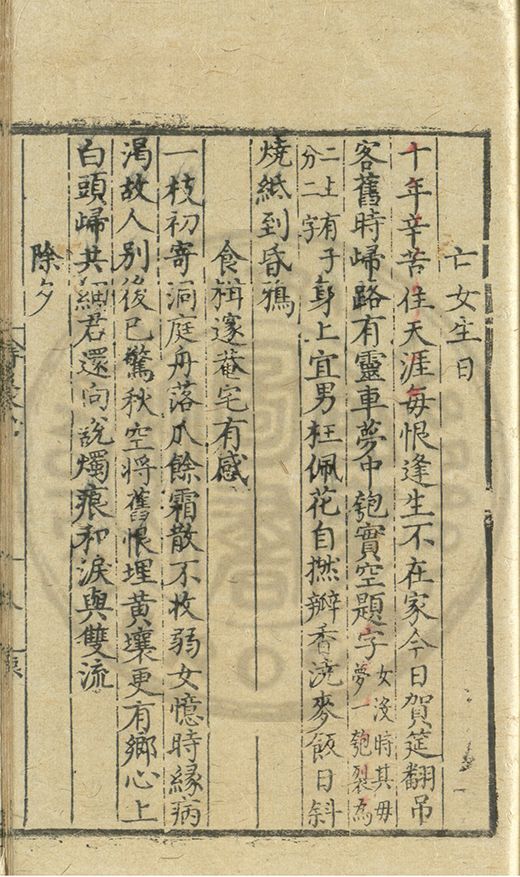 亡女生日
十年辛苦住天涯每恨逢生不在家今日賀筵翻吊
客舊時歸路有靈車夢中匏實空題字女沒時其母夢一匏裂為
二上有子分二字身上宜男枉佩花自撚瓣香澆麥飯日斜
燒紙到昏鴉
食楫邃菴宅有感
一枝初寄洞庭舟落爪餘霜散不收弱女憶時緣病
渴故人別後已驚秋空將舊恨埋黃壤更有鄉心上
白頭歸共細君還向說燭痕和淚與雙流
除夕